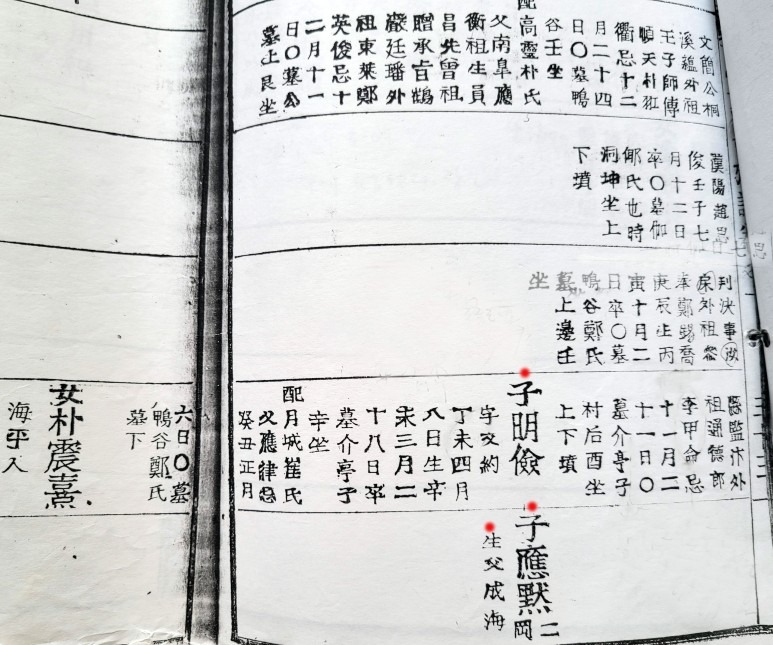 文簡公桐
溪蘊外祖
王子師傅
順天朴
衢忌十二
月二十四
日〇墓鴨
谷壬坐
配高靈朴氏
父南阜應
衡祖生員
昌先曾祖
贈承旨鶴
嚴廷璠外
祖東萊鄭
英俊忌十
二月十一
日〇墓公
墓上艮坐
漢陽趙
俊壬子七
月十二日
卒〇墓伽
鄭氏也時
洞坤坐上
下墳
判決事
外祖
奉鄭錫喬
庚辰生丙
寅十月二
日卒〇墓
鴨谷鄭氏
墓上邊壬
坐
縣監汴外
祖通德郎
李甲命忌
十一月二
十一日〇
墓介亭子
村后酉坐
上下墳
子明儉
字文約
丁未四月
八日生辛
未三月二
十八日卒
墓介亭子
辛坐
配月城崔氏
父應律忌
癸丑正月
六日〇墓
鴨谷鄭氏
墓下
女朴震熹
海平人
子應默
生父成海
二岡